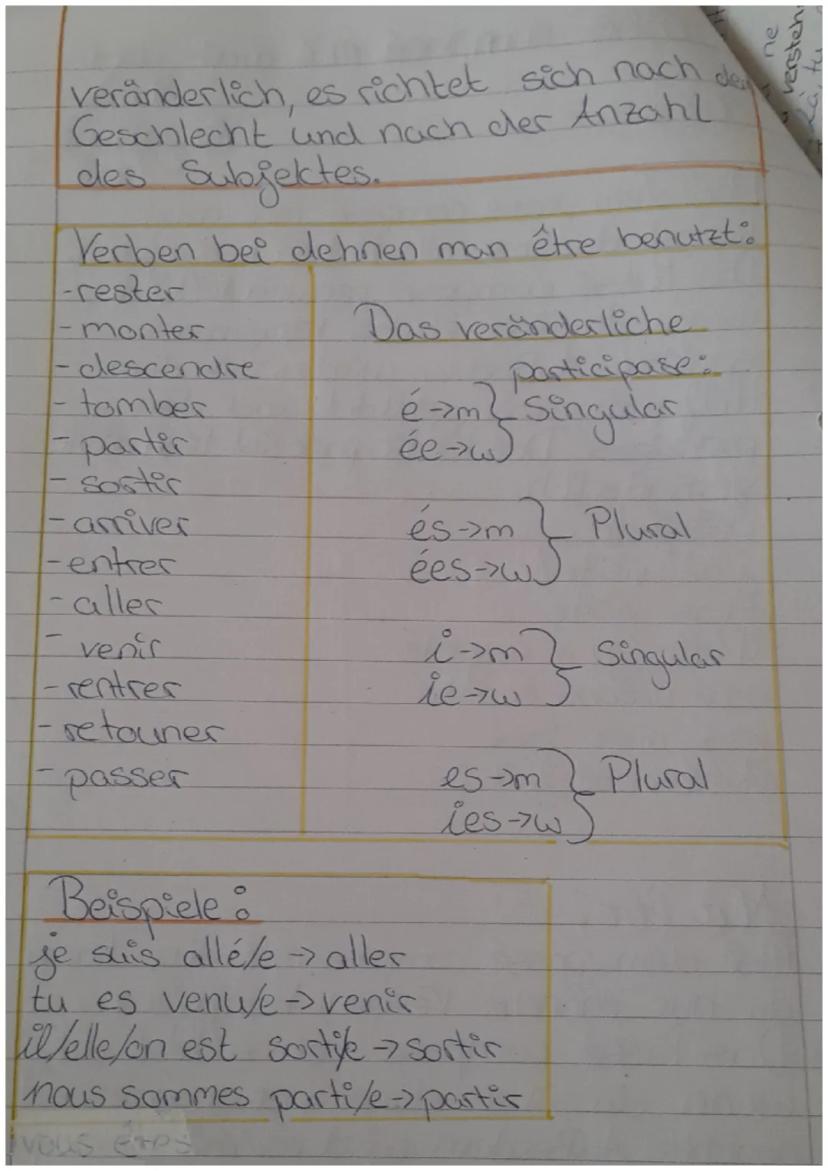 veränderlich, es richtet sich nach dem
Geschlecht und nach der Anzahl
des Subjektes.
Verben bei dehnen man être benutzt:
-rester
-monter
-descendre
-tomber
-partir
-sortir
-arriver
-entrer
-aller
-venir
-rentrer
-retouner
-passer
Das veränderliche
participase:
é->m } Singular
ée->w
és->m } Plural
ées->w
i->m } Singular
ie->w
es->m } Plural
ies->w
Beispiele:
je suis allé/e -> aller
tu es venu/e->venir
il/elle/on est sorti/e -> sortir
nous sommes parti/e->partir
vous êtes
ne
versteh